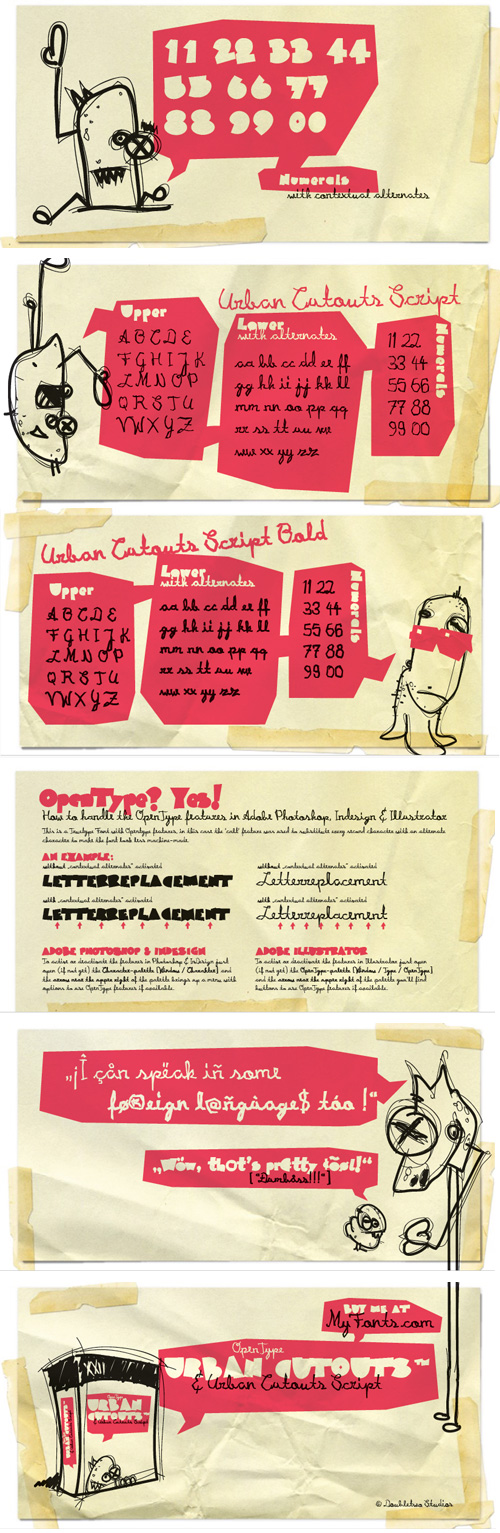 11 22 33 44
55 66 77
88 99 00
Numerals
with contextual alternates
Urban Cutouts Script
Upper
A B C D E
F G H I J K
L M N O P
Q R S T U
V W X Y Z
Lower
with alternates
aa bb cc dd ee ff
gg hh ii jj kk ll
mm nn oo pp qq
rr ss tt uu vv
ww xx yy zz
Numerals
11 22
33 44
55 66
77 88
99 00
Urban Cutouts Script Bold
Upper
A B C D E
F G H I J K
L M N O P
Q R S T U
V W X Y Z
Lower
with alternates
aa bb cc dd ee ff
gg hh ii jj kk ll
mm nn oo pp qq
rr ss tt uu vv
ww xx yy zz
Numerals
11 22
33 44
55 66
77 88
99 00
OpenType? Yes!
How to handle the OpenType features in Adobe Photoshop, Indesign & Illustrator
This is a Truetype Font with Opentype features, in this case the "calt" feature was used to substitute every second character with an alternate
character to make the font look less machine-made.
AN EXAMPLE:
without „contextual alternates" activated
LETTERREPLACEMENT
with „contextual alternates" activated
LETTERREPLACEMENT
without „contextual alternates" activated
Letterreplacement
with „contextual alternates" activated
Letterreplacement
ADOBE PHOTOSHOP & INDESIGN
To active or deactivate the features in Photoshop & InDesign just
open (if not yet) the Character-palette (Window / Charakter) and
the arrow near the upper right of the palette brings up a menu with
options to use OpenType features if available.
ADOBE ILLUSTRATOR
To active or deactivate the features in Illustrator just open
(if not yet) the OpenType-palette (Window / Type / OpenType)
and the arrow near the upper right of the palette you'll find
buttons to use OpenType features if available.
„¡Î çån spëak iñ some
fø®eign l@ñgùage$ tóo !"
„Wöw, that's pretty čõøl!"
["Dumbåss!!!"]
BUY ME AT
MyFonts.com
OpenType
URBAN CUTOUTS™
& Urban Cutouts Script
XXII
URBAN
CUTOUTS
& Urban Cutouts Script
© Doubletwo Studios